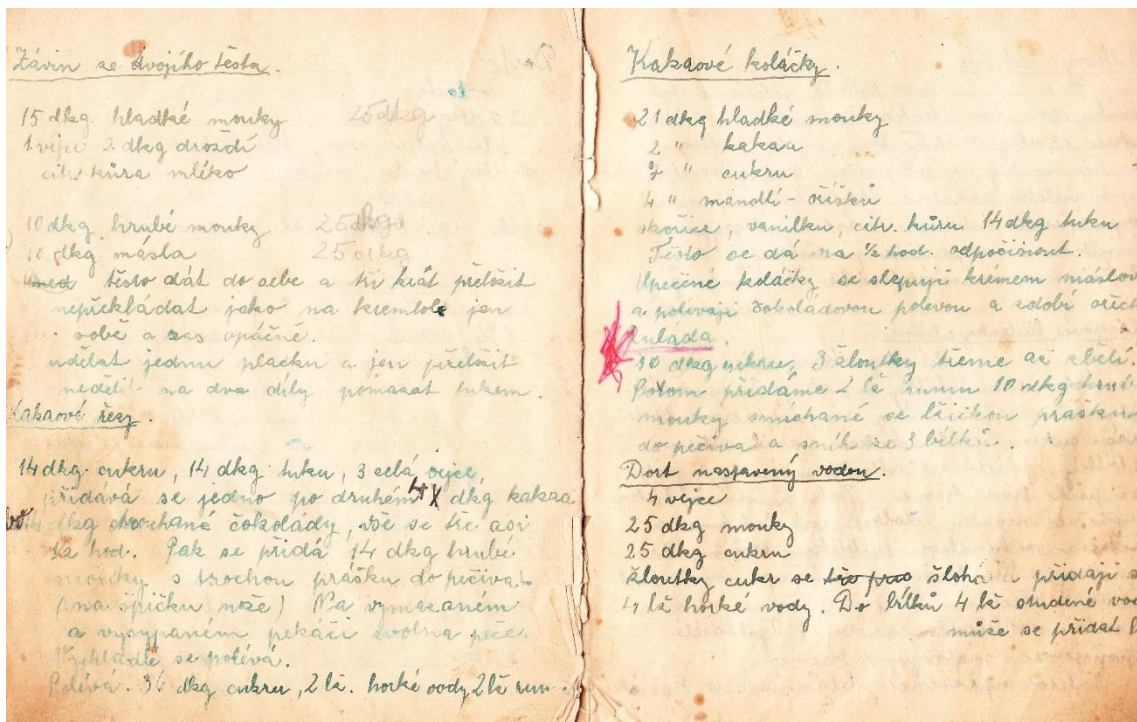 Závin ze dvojího těsta.
15 dkg hladké mouky 25 dkg
1 vejce 2 dkg droždí
citr. kůra mléko
10 dkg hrubé mouky 25 dkg
10 dkg másla 25 dkg
těsto dát do sebe a tři krát přeložit
nepřekládat jako na kremrole jen
sobě a zas opáčně.
udělat jednu placku a jen přeložit
nedělit na dva díly pomazat tukem.
Kakaové řezy.
14 dkg cukru, 14 dkg tuku, 3 celá vejce,
přidává se jedno po druhém 4 X dkg kakaa
dkg strouhané čokolády, vše se tře asi
½ hod. Pak se přidá 14 dkg hrubé
mouky s trochou prášku do pečiva.
(na špičku nože) Na vymazaném
a vysypaném pekáči zvolna peče.
Vychladlé se polévá.
Polévá. 36 dkg cukru, 2 lž. horké vody 2 lž rum.
Kakaové koláčky.
21 dkg hladké mouky
2 " kakaa
7 " cukru
4 " mandlí - oříšků
skořice, vanilku, citr. kůru 14 dkg tuku
Těsto se dá na ½ hod. odpočinout.
Upečené koláčky se slepují krémem máslov
a polévají čokoládovou polevou a zdobí ořech
Roláda.
10 dkg cukru, 3 žloutky třeme až zbělí.
Potom přidáme 2 lž rumu 10 dkg hrubé
mouky smíchané se lžičkou prášku
do pečiva a sníh ze 3 bílků.
Dort nastavený vodou.
4 vejce
25 dkg mouky
25 dkg cukru
žloutky cukr se šlehá a přidají s
4 lž horké vody. Do bílků 4 lž studené vod
může se přidat